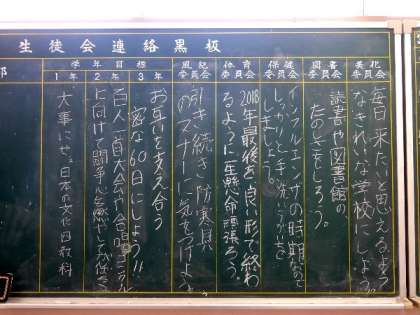 生徒会連絡黒板
美化委員会
毎日来たいと思えるよう
なきれいな学校にしよう。
図書委員会
読書や図書館の
たのさをしろう。
保健委員会
インフルエンザの時期なので
しっかりと手洗いうがいを
しましょう。
体育委員会
2018年最後を良い形で終わ
るように一生懸命頑張ろう。
風紀委員会
引き続き防寒具
のマナーに気をつけよう
学年目標
3年
お互いを支え合う
密な60日にしよう!!
2年
百人一首大会や合唱コンクール
に向けて闘争心を燃やし
1年
大事にせよ日本の文化四教科
部